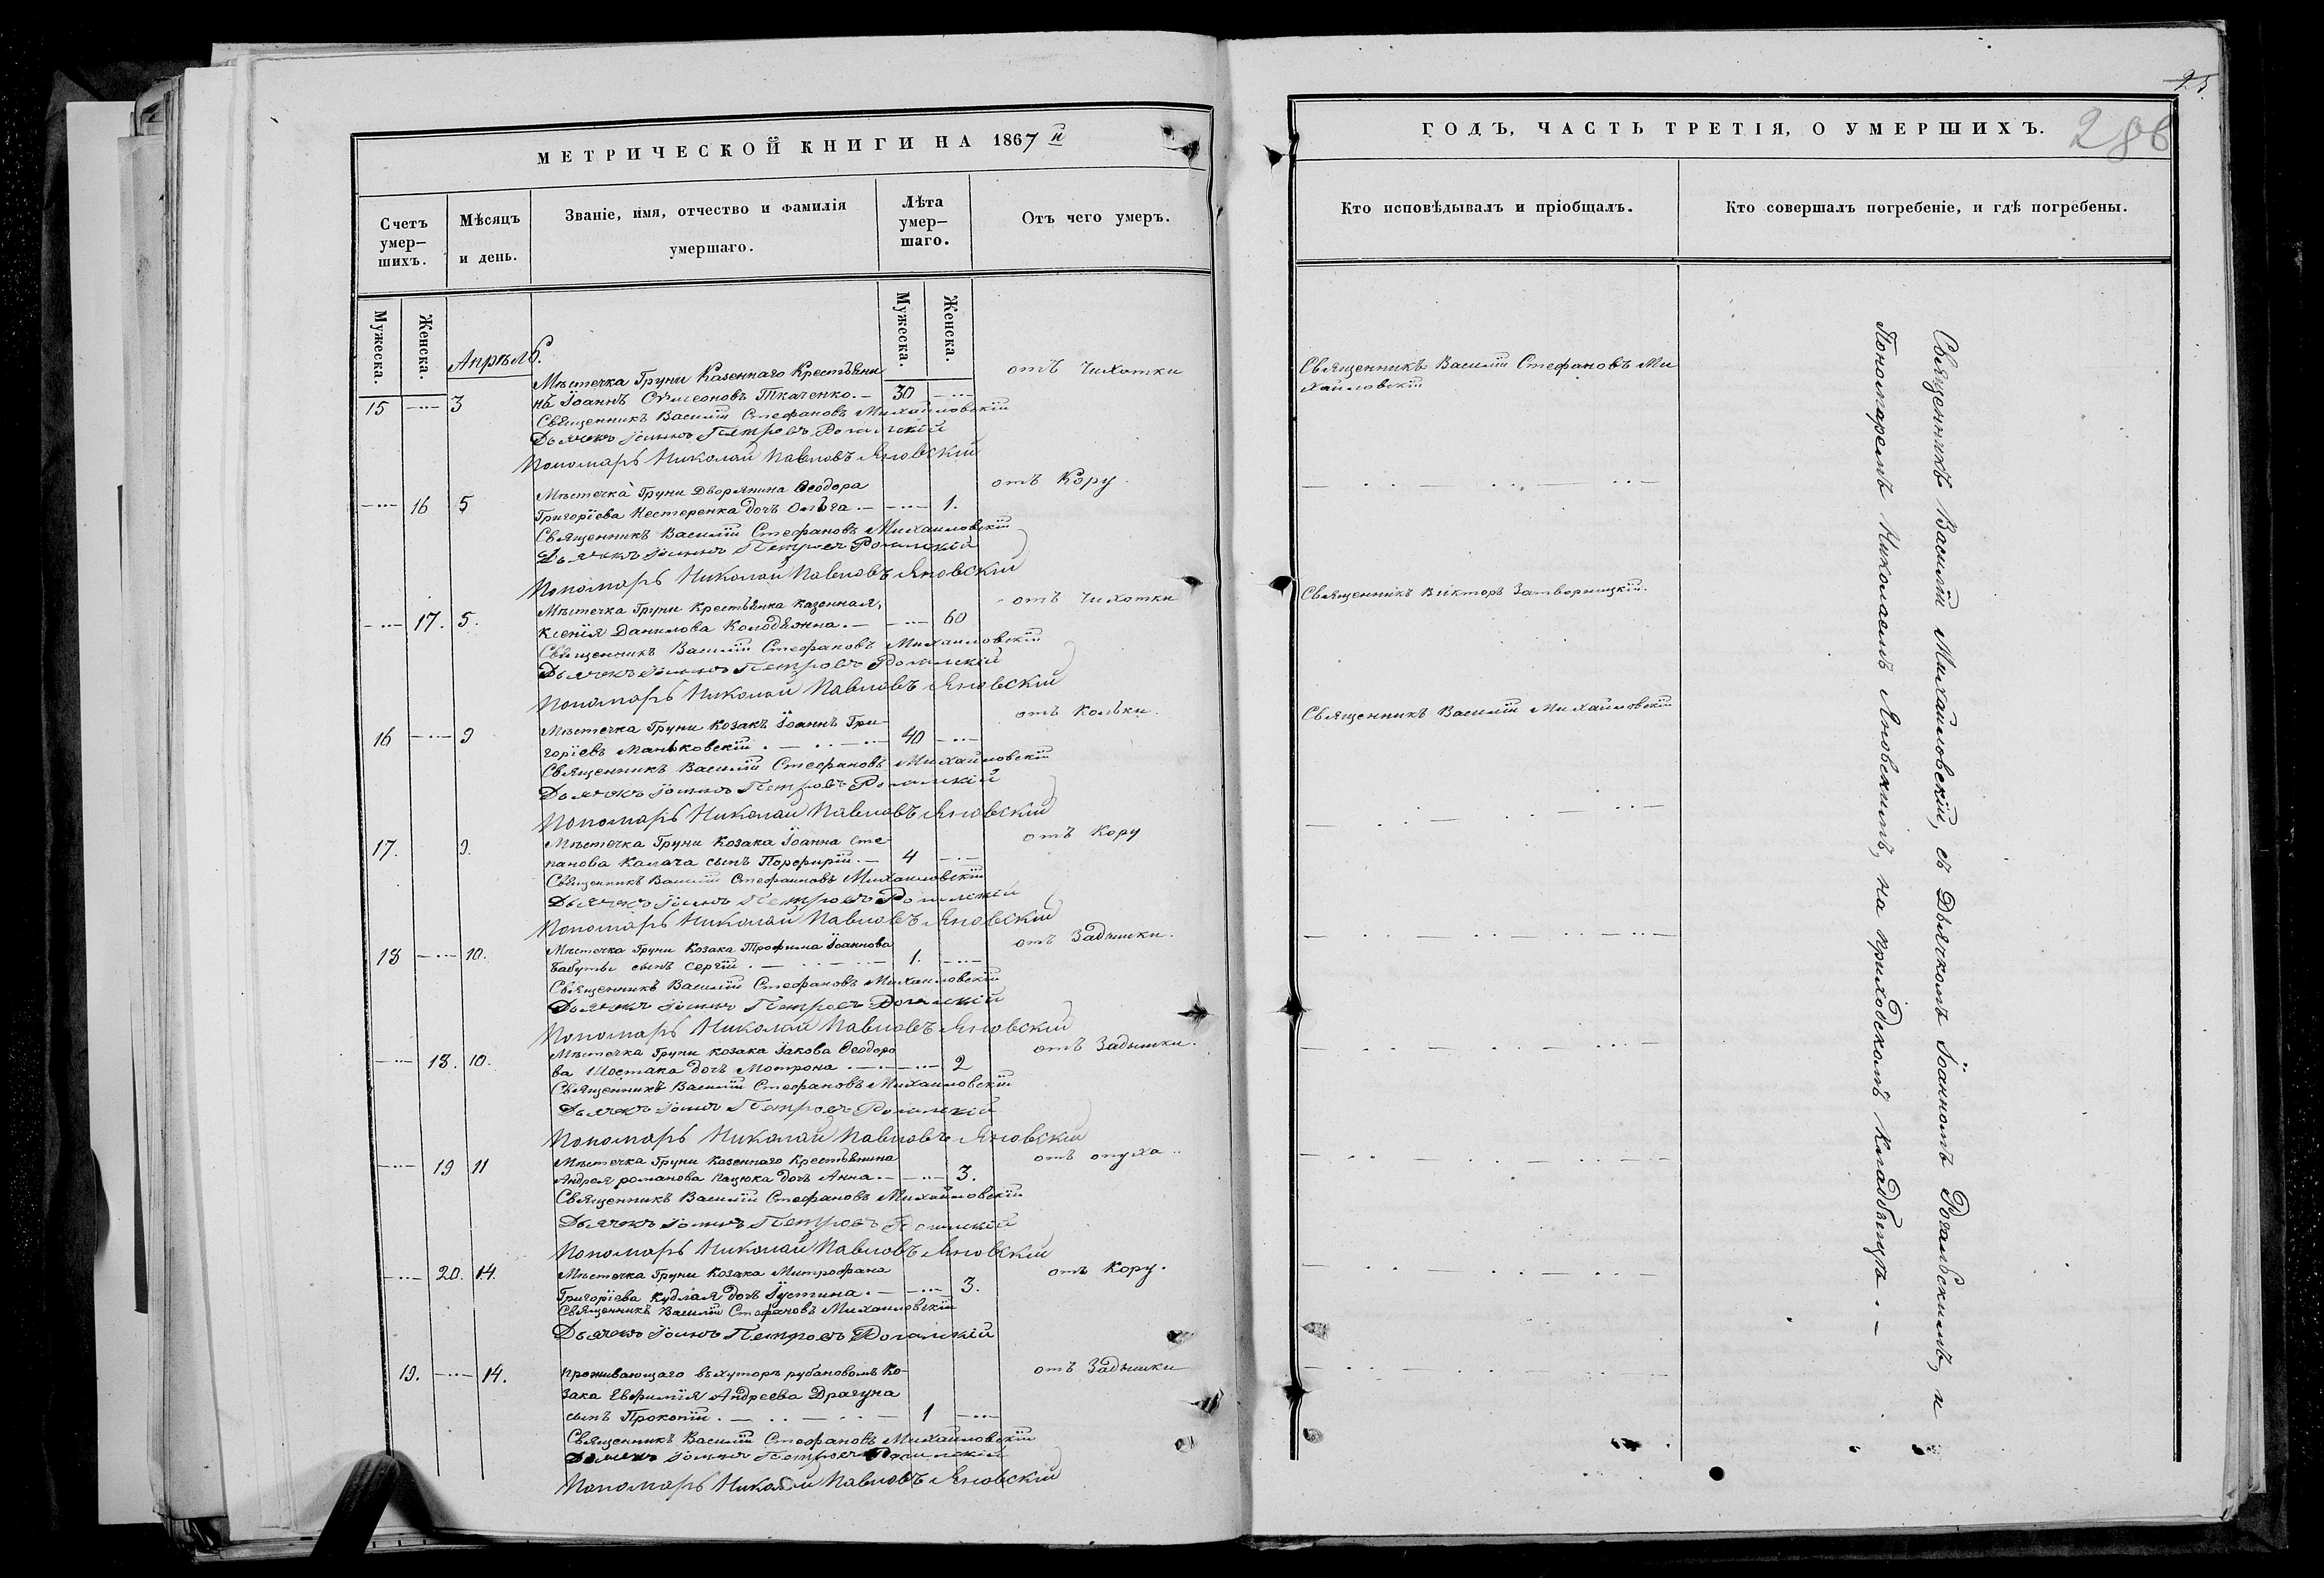 МЕТРИЧЕСКОЙ КНИГИ НА 1867й
Счетъ умер-шихъ.
Мѣсяцъ и день.
Званіе, имя, отчество и фамилія умершаго.
Лѣта умер-шаго.
Отъ чего умеръ.
Мужеска.
Женска.
Мужеска.
Женска.
Апрѣль.
Мѣстечка Груни Казеннаго Крестьяни
отъ Чихотки
15 3 нъ Іоаннъ Сѵмеоновъ Ткаченко. 30
Священникъ Василій Стефановъ Михайловскій
Дьячекъ Іоаннъ Петровъ Рогальскій
Пономарь Николай Павловъ Яновскій
Мѣстечка Груни Дворянина Ѳеодора
отъ Кору
16 5 Григоріева Нестеренка дочь Ольга. 1.
Священникъ Василій Стефановъ Михайловскій
Дьячекъ Іоаннъ Петровъ Рогальскій
Пономарь Николай Павловъ Яновскій
Мѣстечка Груни Крестьянка Казенная,
отъ Чихотки
17. 5. Ксенія Данилова Колодяжна. 60
Священникъ Василій Стефановъ Михайловскій
Дьячекъ Іоаннъ Петровъ Рогальскій
Пономарь Николай Павловъ Яновскій
Мѣстечка Груни Козакъ Іоаннъ Гри-
отъ Кольки.
16 9 горіевъ Маньковскій. 40
Священникъ Василій Стефановъ Михайловскій
Дьячекъ Іоаннъ Петровъ Рогальскій
Пономарь Николай Павловъ Яновскій
Мѣстечка Груни Козака Іоанна Сте-
отъ Кору
17. 9. панова Калача сынъ Порфирій. 4
Священникъ Василій Стефановъ Михайловскій
Дьячекъ Іоаннъ Петровъ Рогальскій
Пономарь Николай Павловъ Яновскій
Мѣстечка Груни Козака Трофима Іоаннова
отъ Задышки.
18 10. Бабуты сынъ Сергій. 1.
Священникъ Василій Стефановъ Михайловскій
Дьячекъ Іоаннъ Петровъ Рогальскій
Пономарь Николай Павловъ Яновскій
Мѣстечка Груни Козака Іакова Ѳеодоро
отъ Задышки.
18. 10. ва Шостака дочь Мотрона. 2
Священникъ Василій Стефановъ Михайловскій
Дьячекъ Іоаннъ Петровъ Рогальскій
Пономарь Николай Павловъ Яновскій
Мѣстечка Груни Казеннаго Крестьянина
отъ опуха
19 11 Андрея романова Пацюка дочь Анна. 3.
Священникъ Василій Стефановъ Михайловскій
Дьячекъ Іоаннъ Петровъ Рогальскій
Пономарь Николай Павловъ Яновскій
Мѣстечка Груни Козака Митрофана
отъ Кору.
20. 14. Григоріева Кудлая дочь Іустина. 3.
Священникъ Василій Стефановъ Михайловскій
Дьячекъ Іоаннъ Петровъ Рогальскій
проживающаго въ хуторѣ рубановомъ Ко-
отъ Задышки
19. 14. зака Евфимія Андреева Драгуна
сынъ Прокопій. 1
Священникъ Василій Стефановъ Михайловскій
Дьячекъ Іоаннъ Петровъ Рогальскій
Пономарь Николай Павловъ Яновскій
25.
286
ГОДЪ, ЧАСТЬ ТРЕТІЯ, О УМЕРШИХЪ.
Кто исповѣдывалъ и пріобщалъ.
Кто совершалъ погребеніе, и гдѣ погребены.
Священникъ Василій Стефановъ Ми
хайловскій
Священникъ Викторъ Затворницкій.
Священникъ Василій Михайловскій
Священникъ Василій Михайловскій, съ Дьячкомъ Іоанномъ Рогальскимъ, и
Пономаремъ Николаемъ Яновскимъ, на приходскомъ Кладбищѣ.